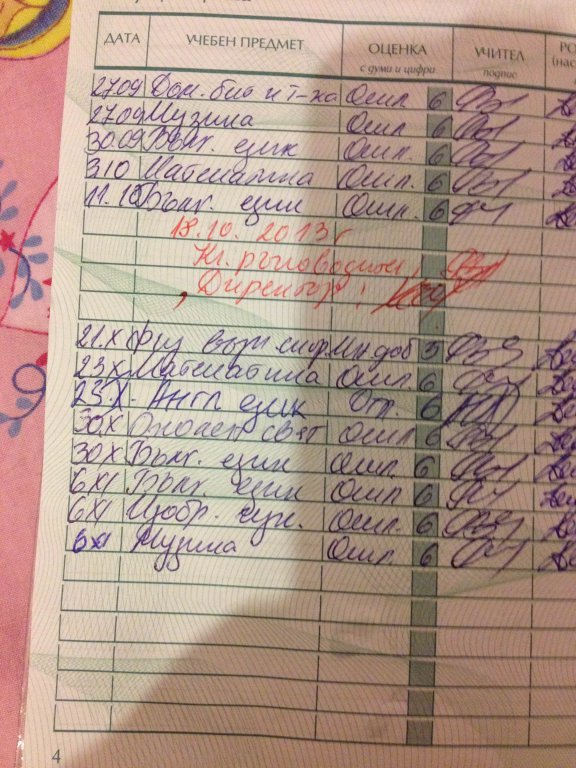 ДАТА УЧЕБЕН ПРЕДМЕТ ОЦЕНКА с думи и цифри УЧИТЕЛ подпис РО (нас
27.09 Дом. бит и т-ка Отл. 6
27.09 Музика Отл. 6
30.09 Бълг. език Отл. 6
3.10 Математика Отл. 6
11.10 Бълг. език Отл. 6
18.10.2013 г.
Кл. ръководител:
Директор:
21.X Физ. възп. спорт Мн. доб 5
23.X Математика Отл. 6
25.X Англ. език Отл. 6
30.X свят Отл. 6
30.X Бълг. език Отл. 6
6.XI Бълг. език Отл. 6
6.XI Изобр. изк. Отл. 6
6.XI Музика Отл. 6
4